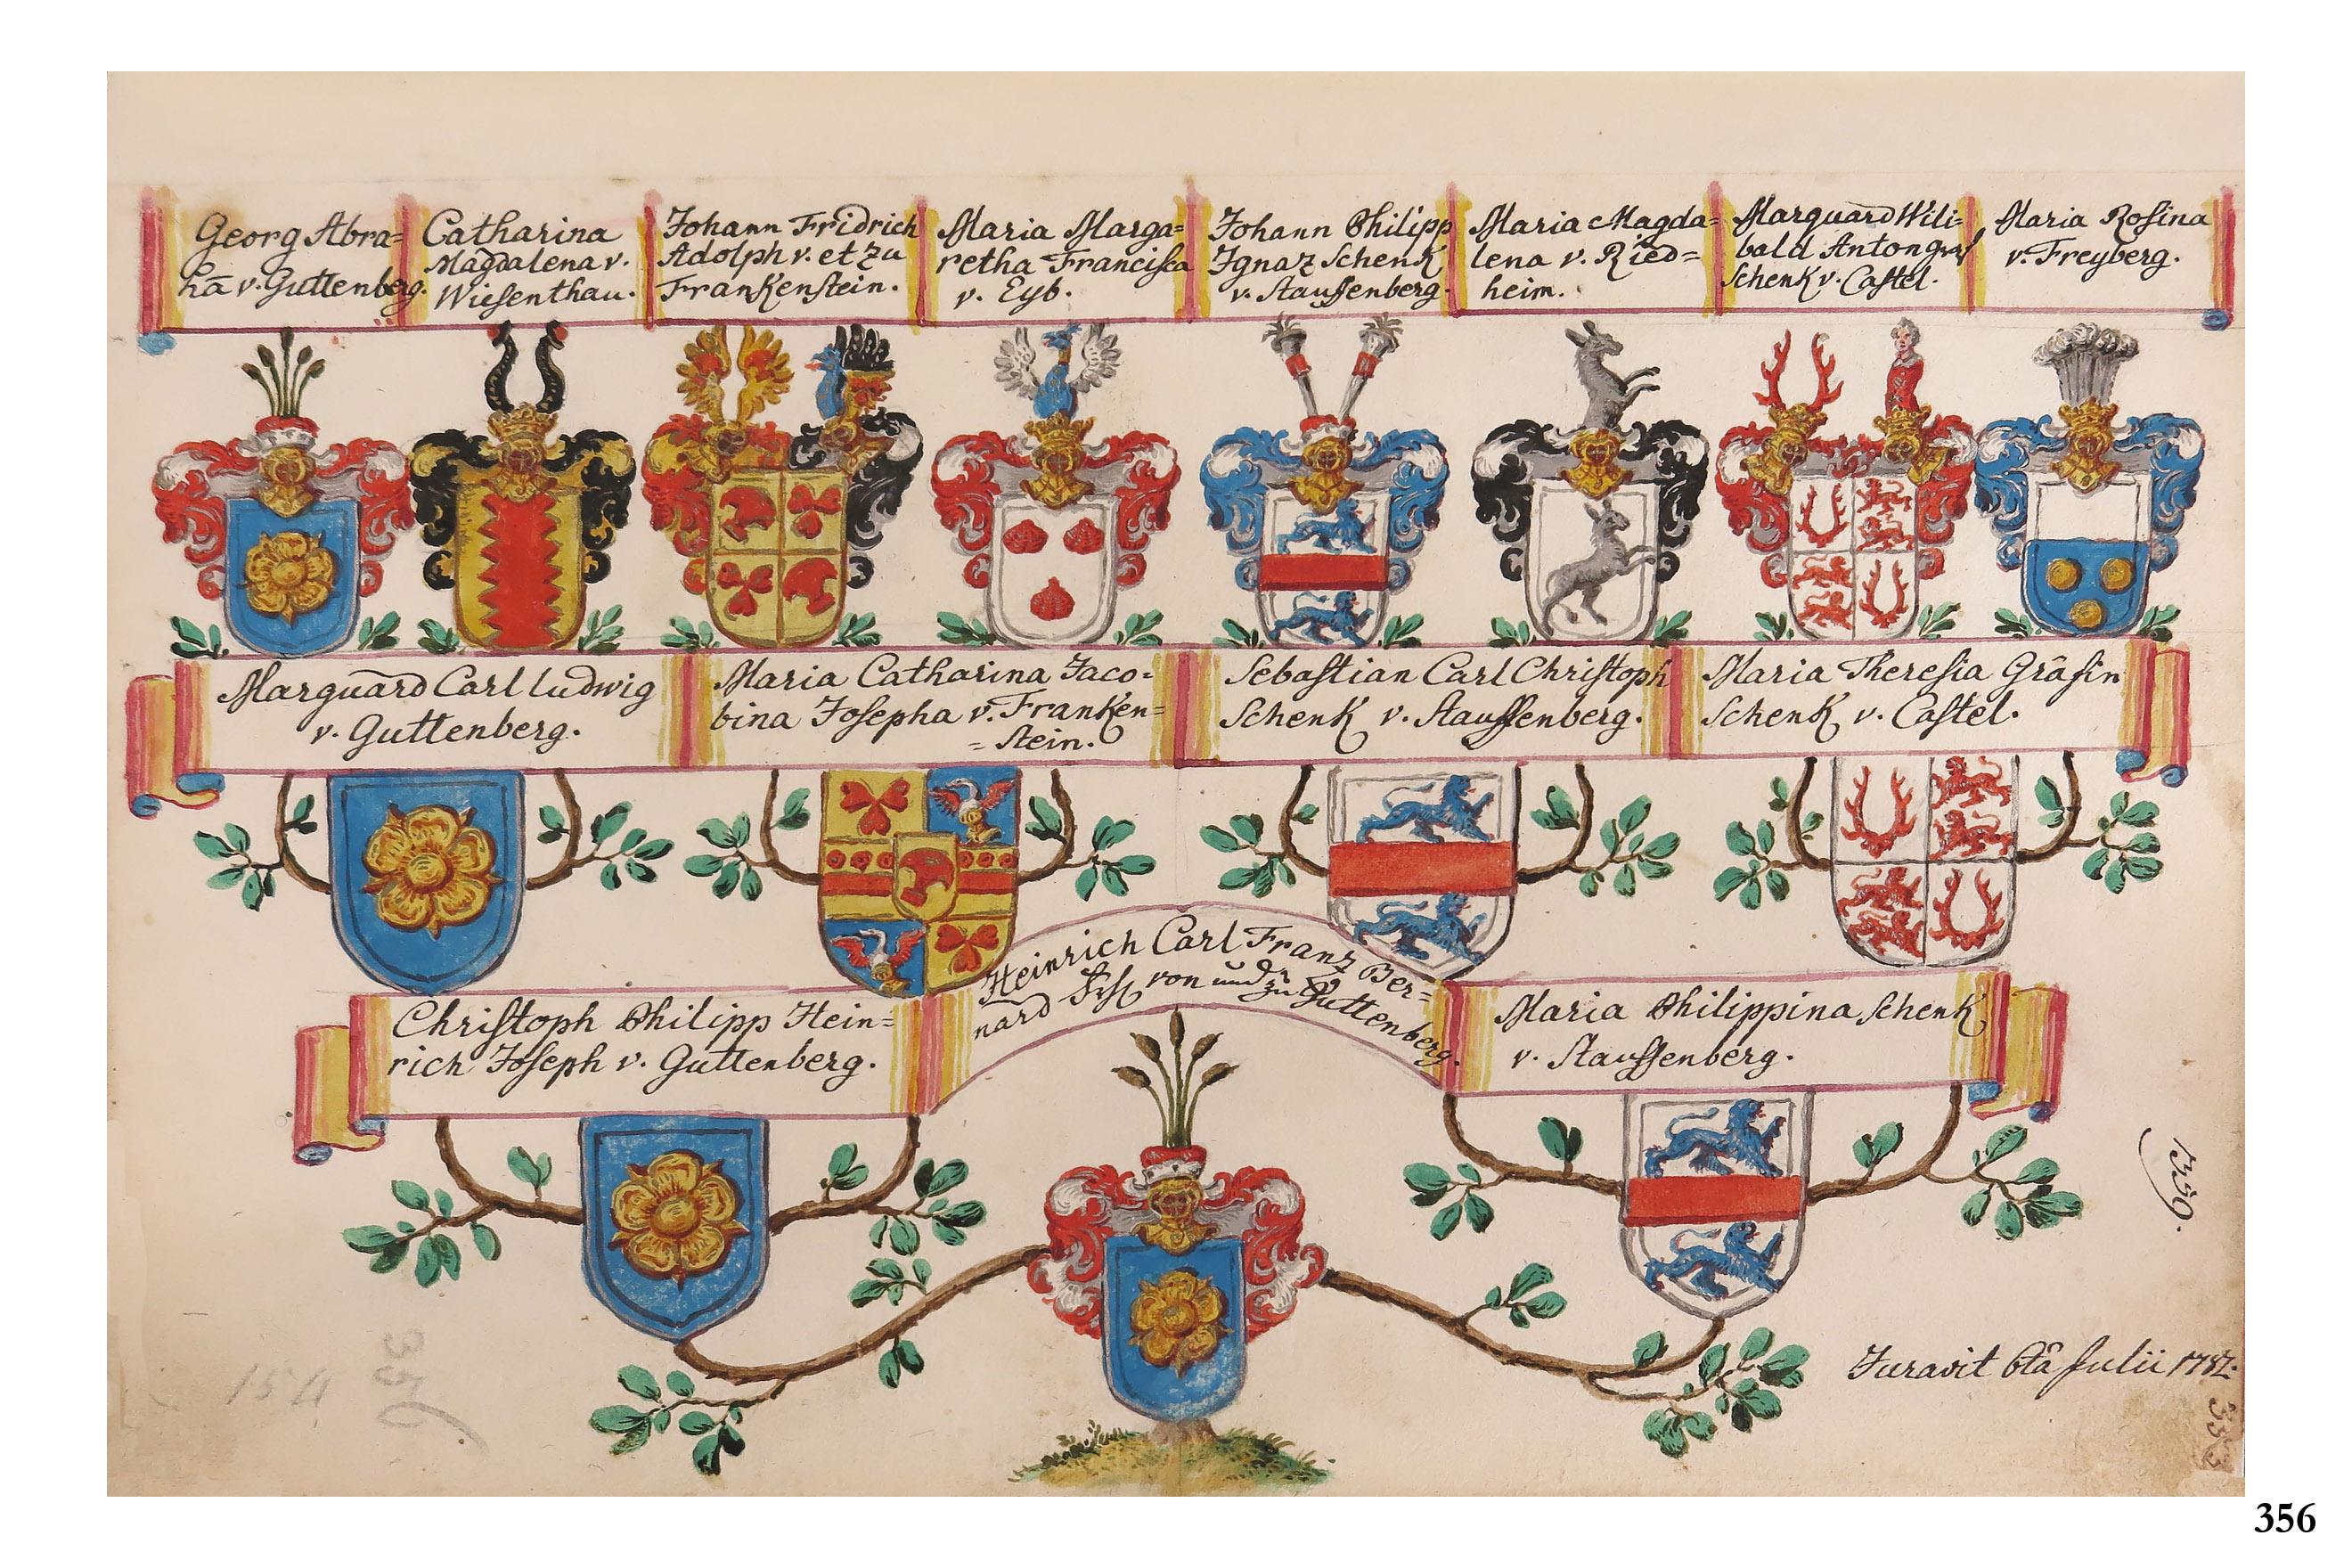 Georg Abra=
hã v. Guttenberg.
Catharina
Magdalena v.
Wiesenthau.
Johann Fridrich
Adolph v. et zu
Frankenstein.
Maria Marga=
retha Francisca
v. Eyb.
Johann Philipp
Ignaz Schenk
v. Stauffenberg.
Maria Magda=
lena v. Ried=
heim.
Marquard Wili=
bald Anton Graf
Schenk v. Castel.
Maria Rosina
v. Freyberg.
Marquard Carl Ludwig
v. Guttenberg.
Maria Catharina Jaco=
bina Josepha v. Franken=
=stein.
Sebastian Carl Christoph
Schenk v. Stauffenberg.
Maria Theresia Gräfin
Schenk v. Castel.
Heinrich Carl Franz Ber=
nard Frh von und zu Guttenberg.
Christoph Philipp Hein=
rich Joseph v. Guttenberg.
Maria Philippina Schenk
v. Stauffenberg.
1359.
Juravit 6tâ Julii 1787.
154
356
353
356